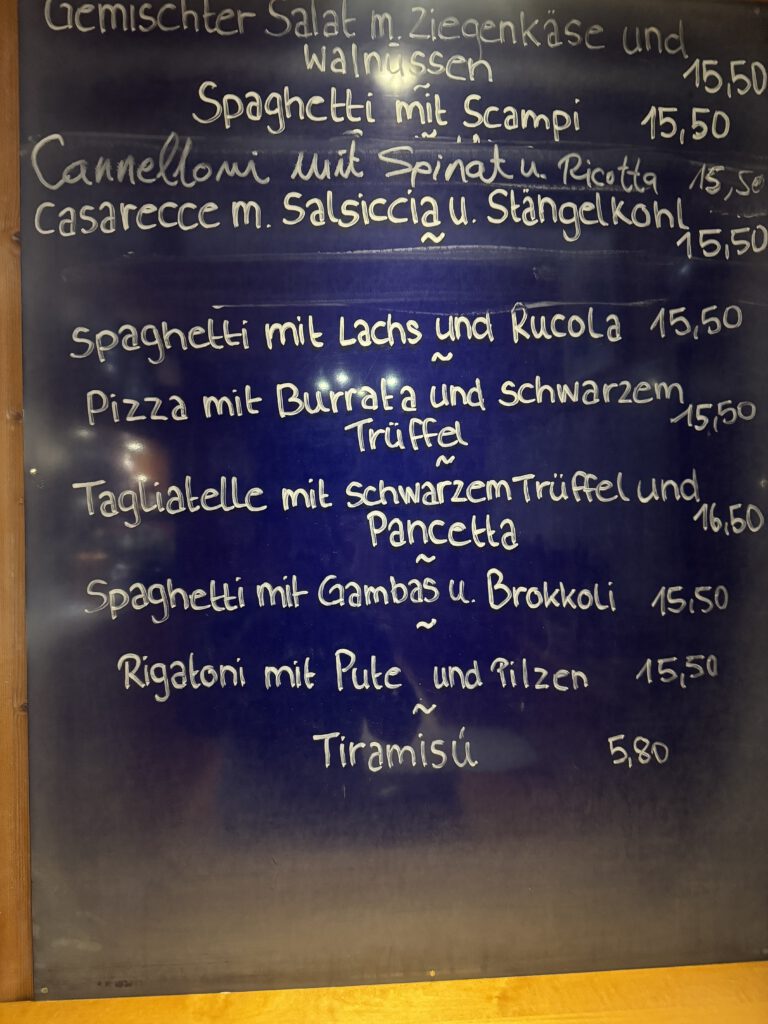 Gemischter Salat m. Ziegenkäse und
Walnüssen 15,50
~
Spaghetti mit Scampi 15,50
~
Cannelloni mit Spinat u. Ricotta 15,50
Casarecce m. Salsiccia u. Stängelkohl
15,50
~
Spaghetti mit Lachs und Rucola 15,50
~
Pizza mit Burrata und schwarzem
15,50
Trüffel
~
Tagliatelle mit schwarzem Trüffel und
16,50
Pancetta
~
Spaghetti mit Gambas u. Brokkoli 15,50
~
Rigatoni mit Pute und Pilzen 15,50
~
Tiramisú 5,80